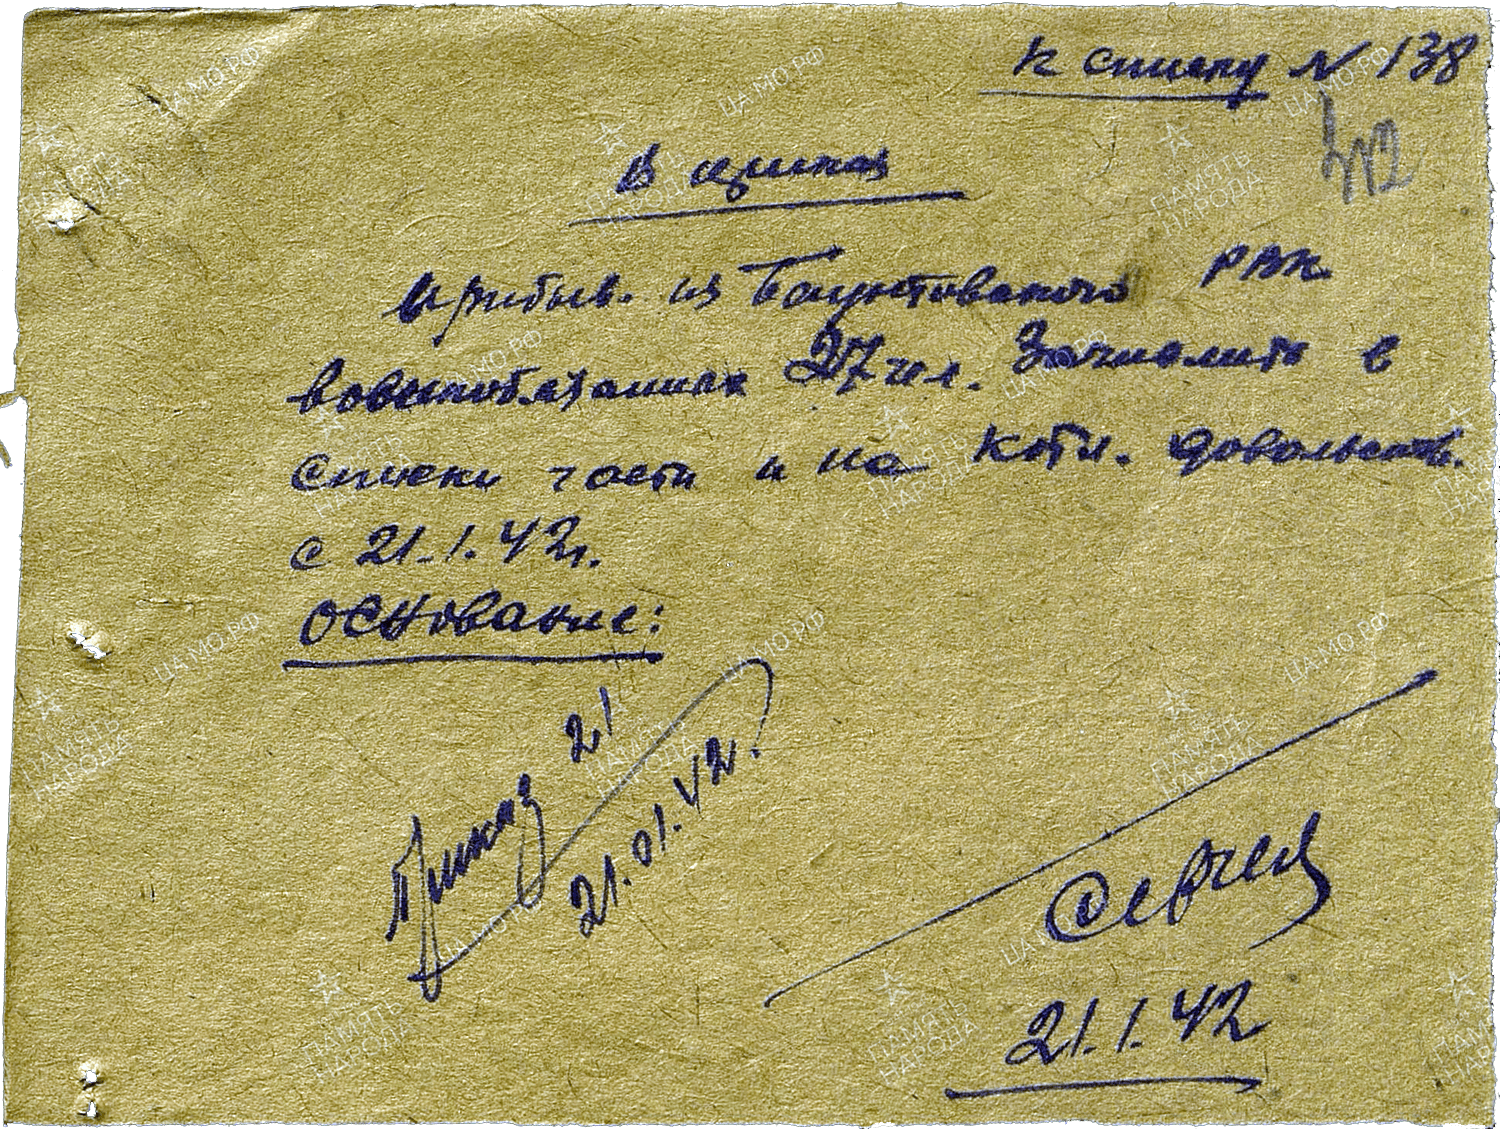 к списку № 138
В приказ
Прибыв. из Баунтовского РВК
военнообязаных 27 чел. Зачислить в
списки части и на котл. довольств.
с 21.1.42г.
Основание:
Приказ 21
21.01.42.
21.1.42
ЦА МО РФ
ПАМЯТЬ НАРОДА